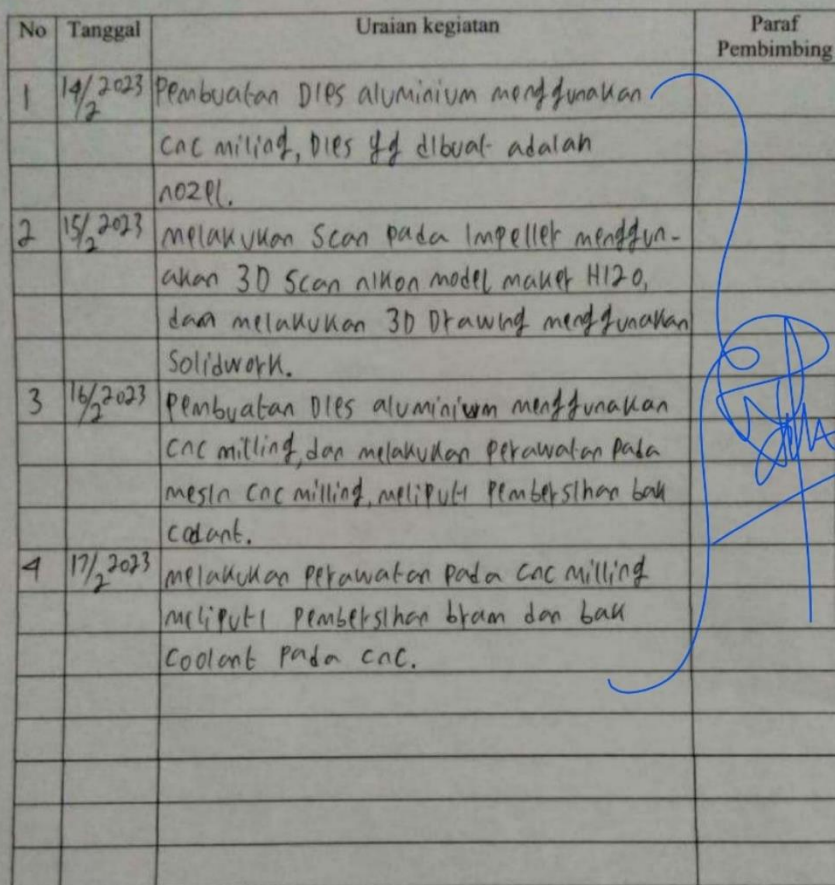 No Tanggal Uraian kegiatan Paraf Pembimbing
1 14/2 2023 Pembuatan Dies aluminium menggunakan
cnc miling, Dies yg dibuat adalah
nozel.
2 15/2 2023 melakukan Scan pada Impeller menggun-
akan 3D Scan nikon model maker H120,
dan melakukan 3D Drawing menggunakan
Solidwork.
3 16/2 2023 Pembuatan Dies aluminium menggunakan
cnc milling, dan melakukan Perawatan Pada
mesin cnc milling, meliputi Pembersihan bak
coolant.
4 17/2 2023 melakukan Perawatan Pada cnc milling
meliputi Pembersihan bram dan bak
Coolant Pada cnc.